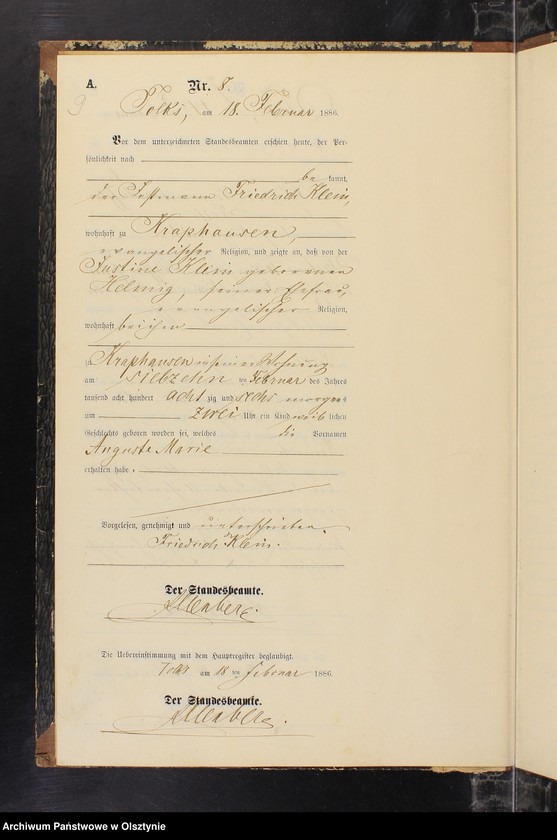 A.
Nr. 8.
9
Tolks, am 18. Februar 1886.
Vor dem unterzeichneten Standesbeamten erschien heute, der Per-
sönlichkeit nach
be kannt,
der Friedrich Klein,
wohnhaft zu Kraphausen,
evangelischer Religion, und zeigte an, daß von der
Justine Klein geborenen
Helmig, seiner Ehefrau,
evangelischer Religion,
wohnhaft bei ihm
zu Kraphausen in seiner Wohnung
am siebzehn ten Februar des Jahres
tausend acht hundert acht zig und sechs morgens
um zwei Uhr ein Kind weib lichen
Geschlechts geboren worden sei, welches die Vornamen
Auguste Marie
erhalten habe.
Vorgelesen, genehmigt und unterschrieben.
Friedrich Klein.
Der Standesbeamte.
Die Uebereinstimmung mit dem Hauptregister beglaubigt.
Tolks am 18 ten Februar 1886.
Der Standesbeamte.
Archiwum Państwowe w Olsztynie